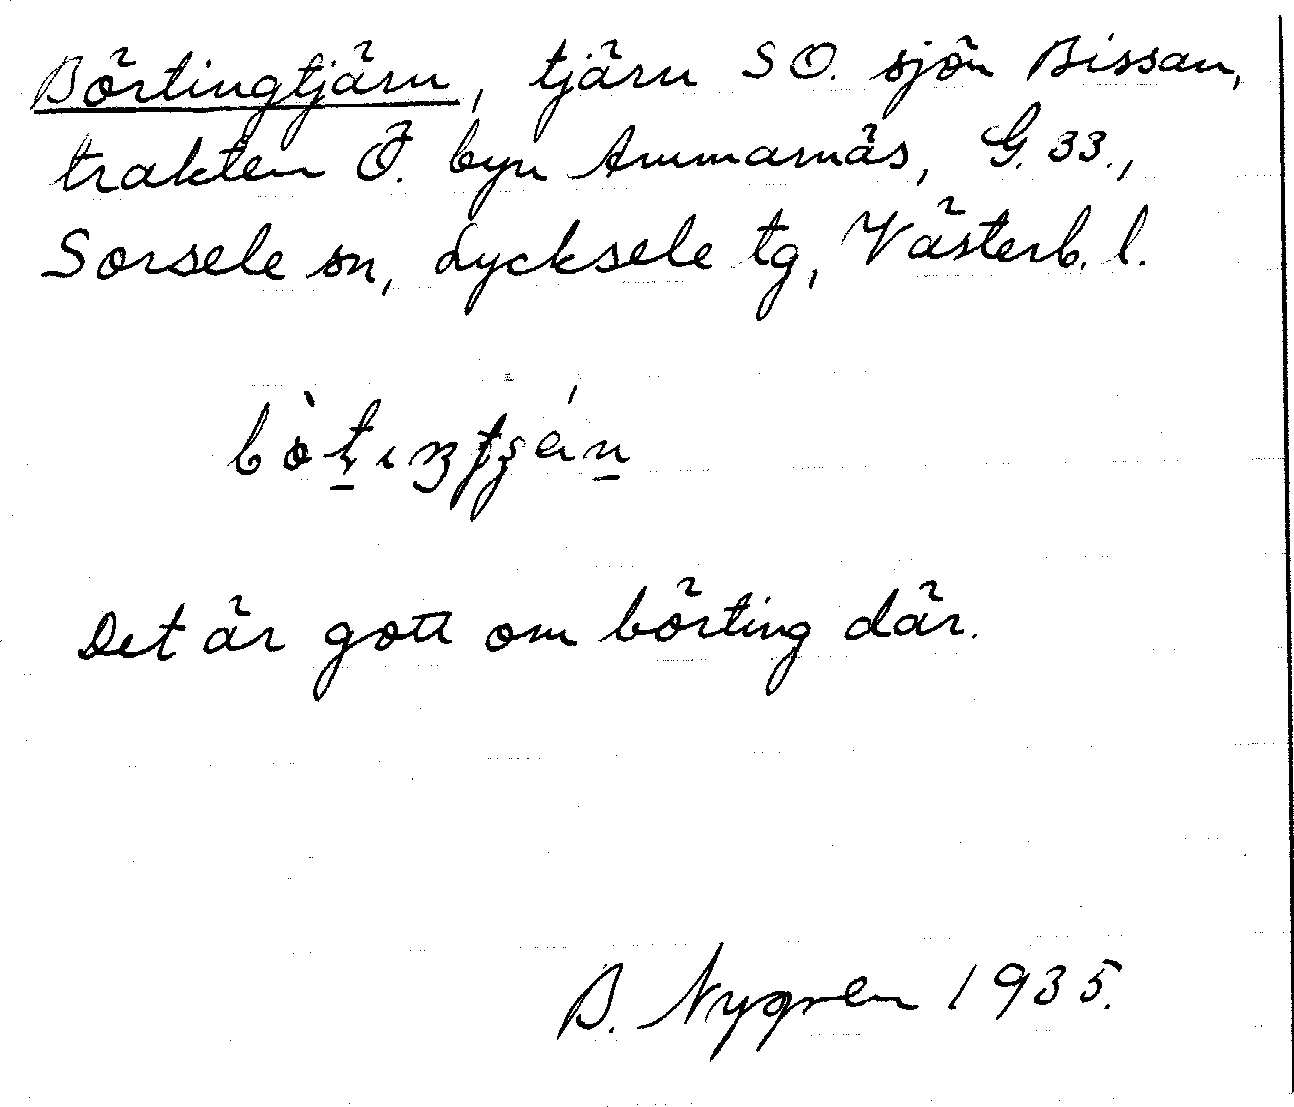 Börtingtjärn, tjärn SO. sjön Bissan,
trakten Ö. byn Ammarnäs, G. 33.,
Sorsele sn, Lycksele tg, Västerb. l.
Det är gott om börting där.
B. Nygren 1935.